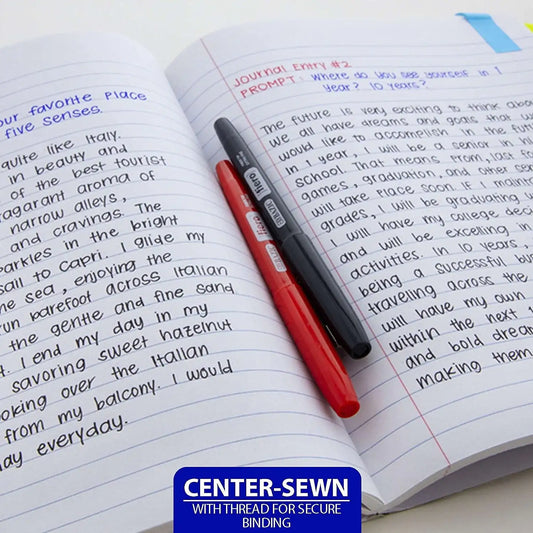 our favorite place
five senses.
quite like Italy.
in beauty and
of the best tourist
fragarant aroma of
narrow alleys,
and cravings. The
sparkles in the bright
sail to Capri. I glide my
he sea, enjoying the
run barefoot across Italian
the gentle and fine sand
I end my day in my
savoring sweet hazelnut
ooking over the Italian
from my balcony. I would
ay everyday.
Journal Entry #2
PROMPT: Where do you see yourself in 1
year? 10 years?
The future is very exciting to think abou
we all have dreams and goals that w
would like to accomplish in the futu
in 1 year, I will be a senior in hi
school. That means prom, last fo
games, graduation, and other se
will take place soon. If I maintai
grades, I will be graduating w
I will have my college deci
and will be excelling in
activities. In 10 years,
being a successful bu
traveling across the
will have my own
within the next 1
and bold dream
making them
Flero
Flero
CENTER-SEWN
WITH THREAD FOR SECURE
BINDING